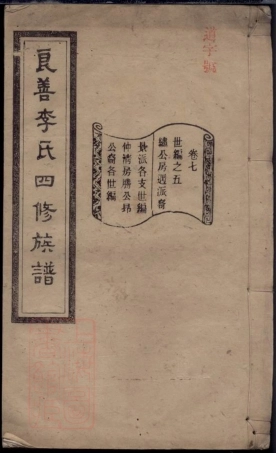 良善李氏四修族譜
卷七
世編之五
繡公房遇派裔
景派各支世編
仲清房勝公昂
公裔各世編